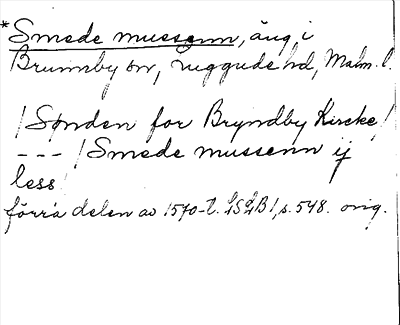 *Smede mussenn, äng i
Brunnby sn, Luggude hd, Malm. l.
/Sønden for Bryndby Kircke/
--- /Smede mussenn ij
less/
förra delen av 1570-t. LSLB1, s. 548. orig.